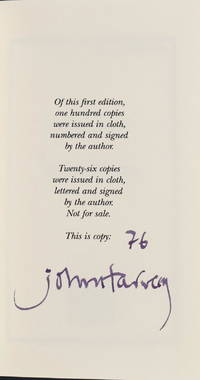 Of this first edition,
one hundred copies
were issued in cloth,
numbered and signed
by the author.
Twenty-six copies
were issued in cloth,
lettered and signed
by the author.
Not for sale.
This is copy: 76
John Harvey